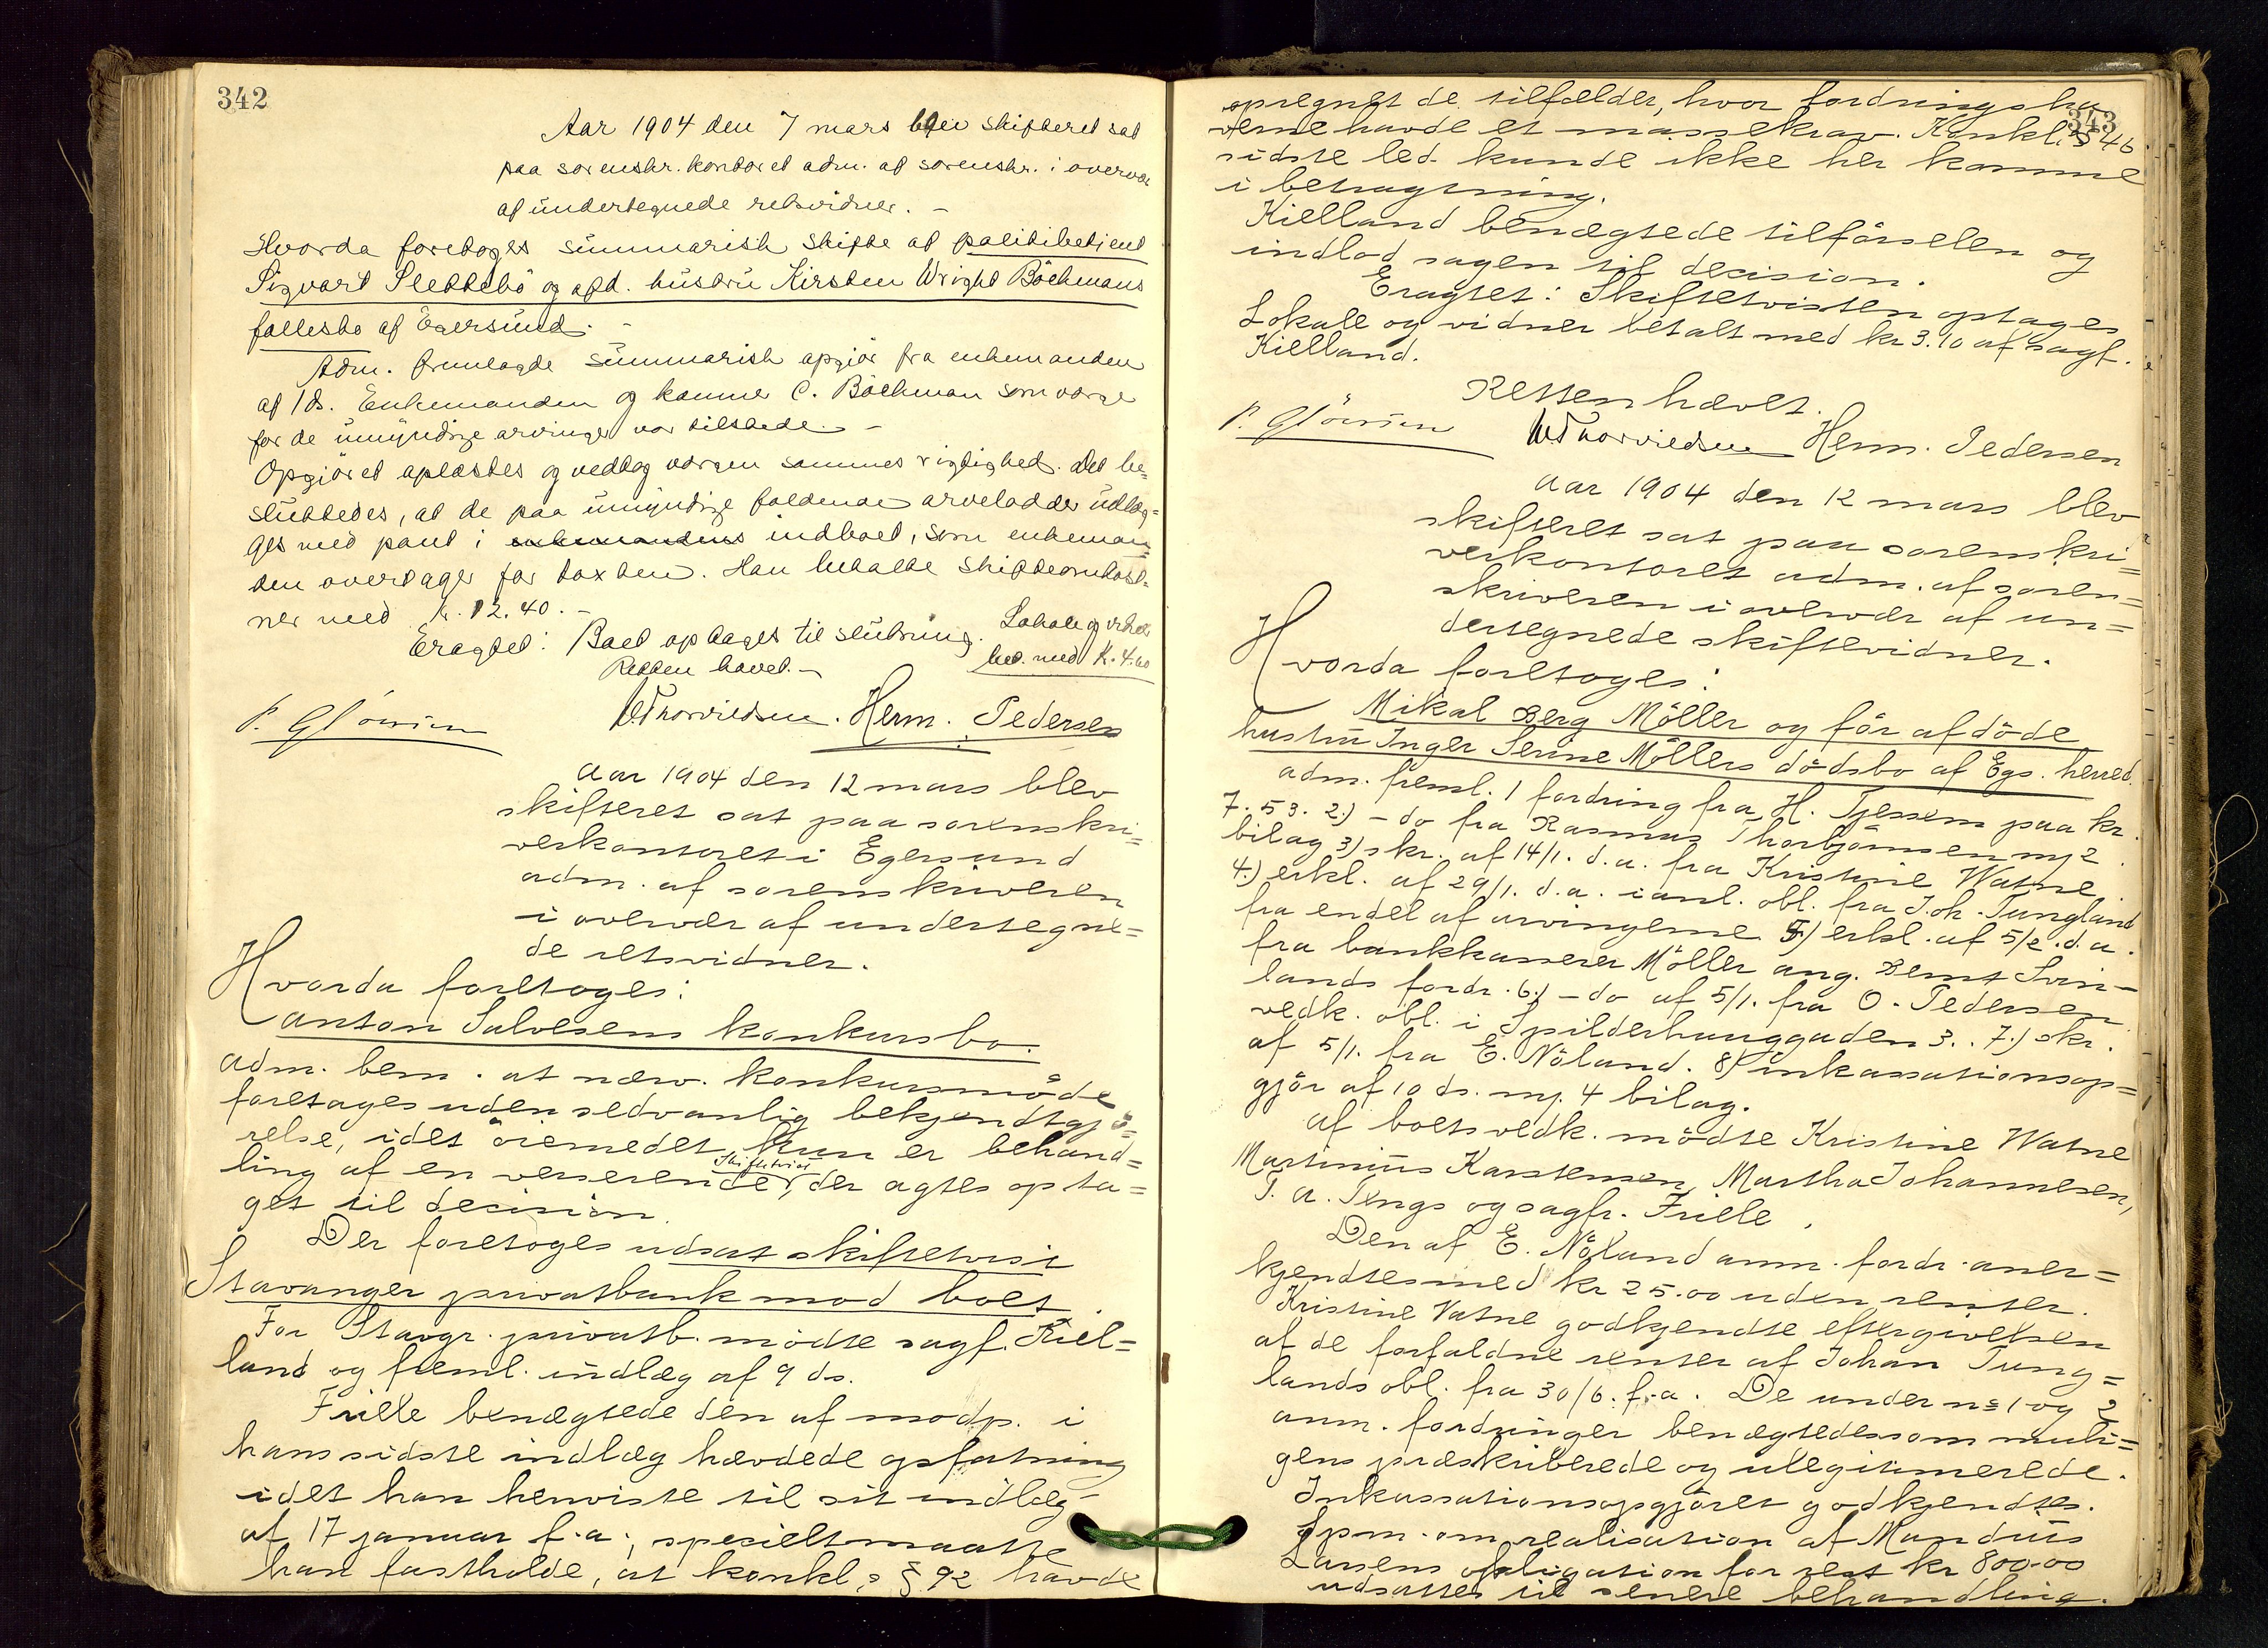 342
Aar 1904 den 7 mars blev skifteret sat
paa sorenskr. kontoret adm. af sorenskr. i overvær
af undertegnede retsvidner. –
Hvorda foretoges summarisk skifte af politibetjent
Sigvart Slettebö og afd. hustru Kirsten Wright Böckmans
fællesbo af Egersund. –
Adm. fremlagde summarisk opgjör fra enkemanden
af 1 ds. Enkemanden og C. Böckman som værge
for de umyndige arvinger var tilstede. –
Opgjöret oplæstes og vedtog værgen sammes rigtighed. Det be-
sluttedes, at de paa umyndige faldende arvelodder udlæg=
ges med pant i indboet, som enkeman=
den overtager for taxten. Han betalte skifteomkost-
ner med k. 12.40. –
Eragtet: Boet optages til slutning. Lokale og vidner
Retten hævet. – bet. med K. 4.00
Thorvildsen. Herm. Pedersen
Aar 1904 den 12 mars blev
skifteret sat paa sorenskri=
verkontoret i Egersund
adm. af sorenskriveren
i overvær af undertegne=
de retsvidner.
Hvorda foretoges:
Anton Salvesens konkursbo.
Adm. bem. at nærv. konkursmöde
foretages uden sedvanlig bekjendtgjö=
relse, idet öiemedet kun er behand=
ling af en verserende skiftetvist, der agtes opta=
get til decision.
Der foretoges udsat skiftetvist
Stavanger privatbank mod boet.
For Stavgr. privatb. mödte sagf. Kiel=
land og freml. indlæg af 9 ds.
Frille benægtede den af modp. i
hans sidste indlæg hævdede opfatning
idet han henviste til sit indlæg
af 17 januar f.a., specielt maatte
han fastholde, at konkl.s § 92 havde
343
opregnet de tilfælder, hvor fordringsha
verne havde et massekrav. Konkl. § 46
sidste led kunde ikke her komme
i betragtning.
Kielland benægtede tilförselen og
indlod sagen til decision.
Eragtet: Skiftetvisten optages
Lokale og vidner betalt med kr 3.10 af sagf.
Kielland.
Retten hævet.
Thorvildsen Herm. Pedersen
Aar 1904 den 12 mars blev
skifteret sat paa sorenskri=
verkontoret adm. af soren=
skriveren i overvær af un=
dertegnede skiftevidner.
Hvorda foretoges:
Mikal Berg Möller og för afdöde
hustru Inger Serine Möllers dödsbo af Egs. herred.
Adm. freml. 1 fordring fra H. Tjessem paa kr.
7.53. 2.) – do fra Rasmus Thorbjörnsen m/ 2
bilag 3) skr. af 14/1. d.a. fra Kristine Watne.
4.) erkl. af 29/1. d.a. i anl. obl. fra Joh. Tungland
fra endel af arvingerne 5) erkl. af 5/2. d.a.
fra bankkasserer Möller ang. Bernt Svin-
lands fordr. 6.) – do af 5/1. fra O. Pedersen
vedk. obl. i Spilderhauggaden 3. 7.) skr.
af 5/1. fra E. Nöland. 8) inkassationsop=
gjör af 10 ds. m/ 4 bilag.
Af boets vedk. mödte Kristine Watne
Martinius Karstensen, Martha Johannesen,
T. A. Tengs og sagfr. Frille.
Den af E. Nöland anm. fordr. aner=
kjendtes med kr 25.00 uden renter.
Kristine Vatne godkjendte eftergivelsen
af de forfaldne renter af Johan Tung=
lands obl. fra 30/6. f.a. De under no 1 og 2
anm. fordringer benægtedes som muli=
gens præskriberede og ulegitimerede.
Inkassationsopgjöret godkjendtes.
Spm. om realisation af Mandius
Larsens obligation for rest kr 800.00
udsattes til senere behandling.